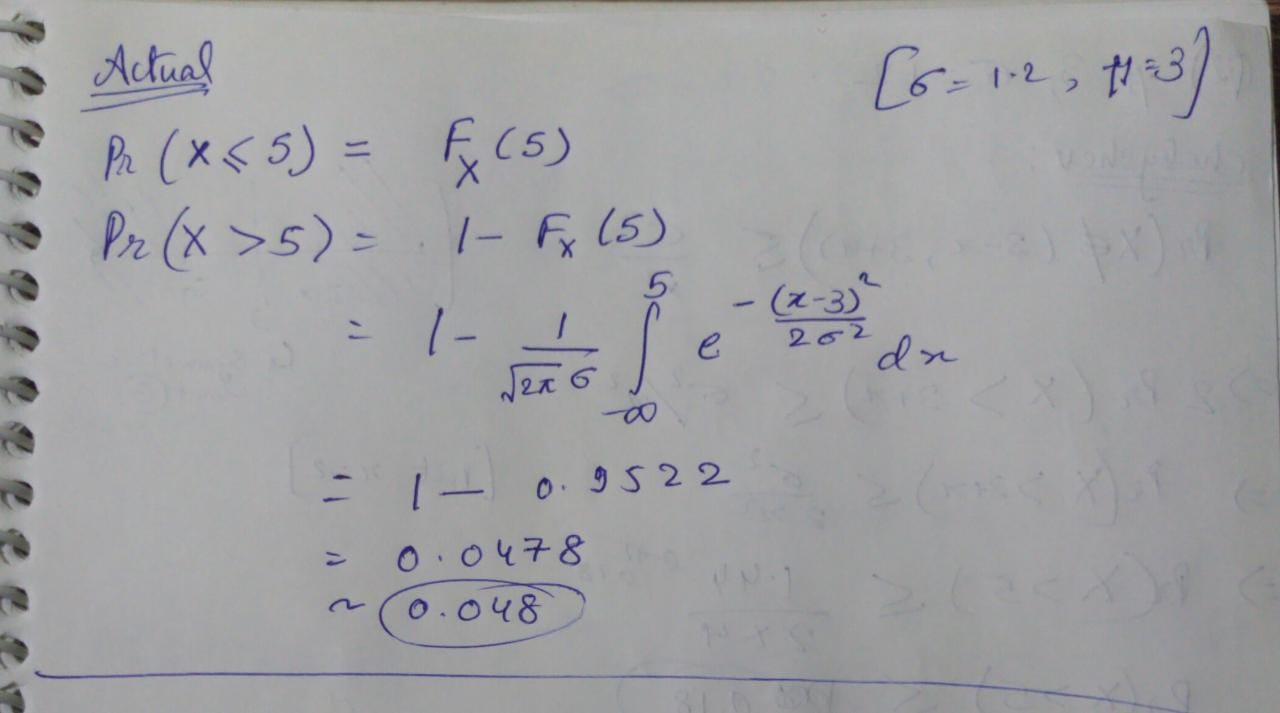 Actual
[σ = 1.2, μ = 3]
Pr (X ≤ 5) = F_X (5)
Pr (X > 5) = 1 - F_X (5)
= 1 - 1/(√2π σ) ∫_{-∞}^{5} e^{-(x-3)²/2σ²} dx
= 1 - 0.9522
= 0.0478
~ 0.048